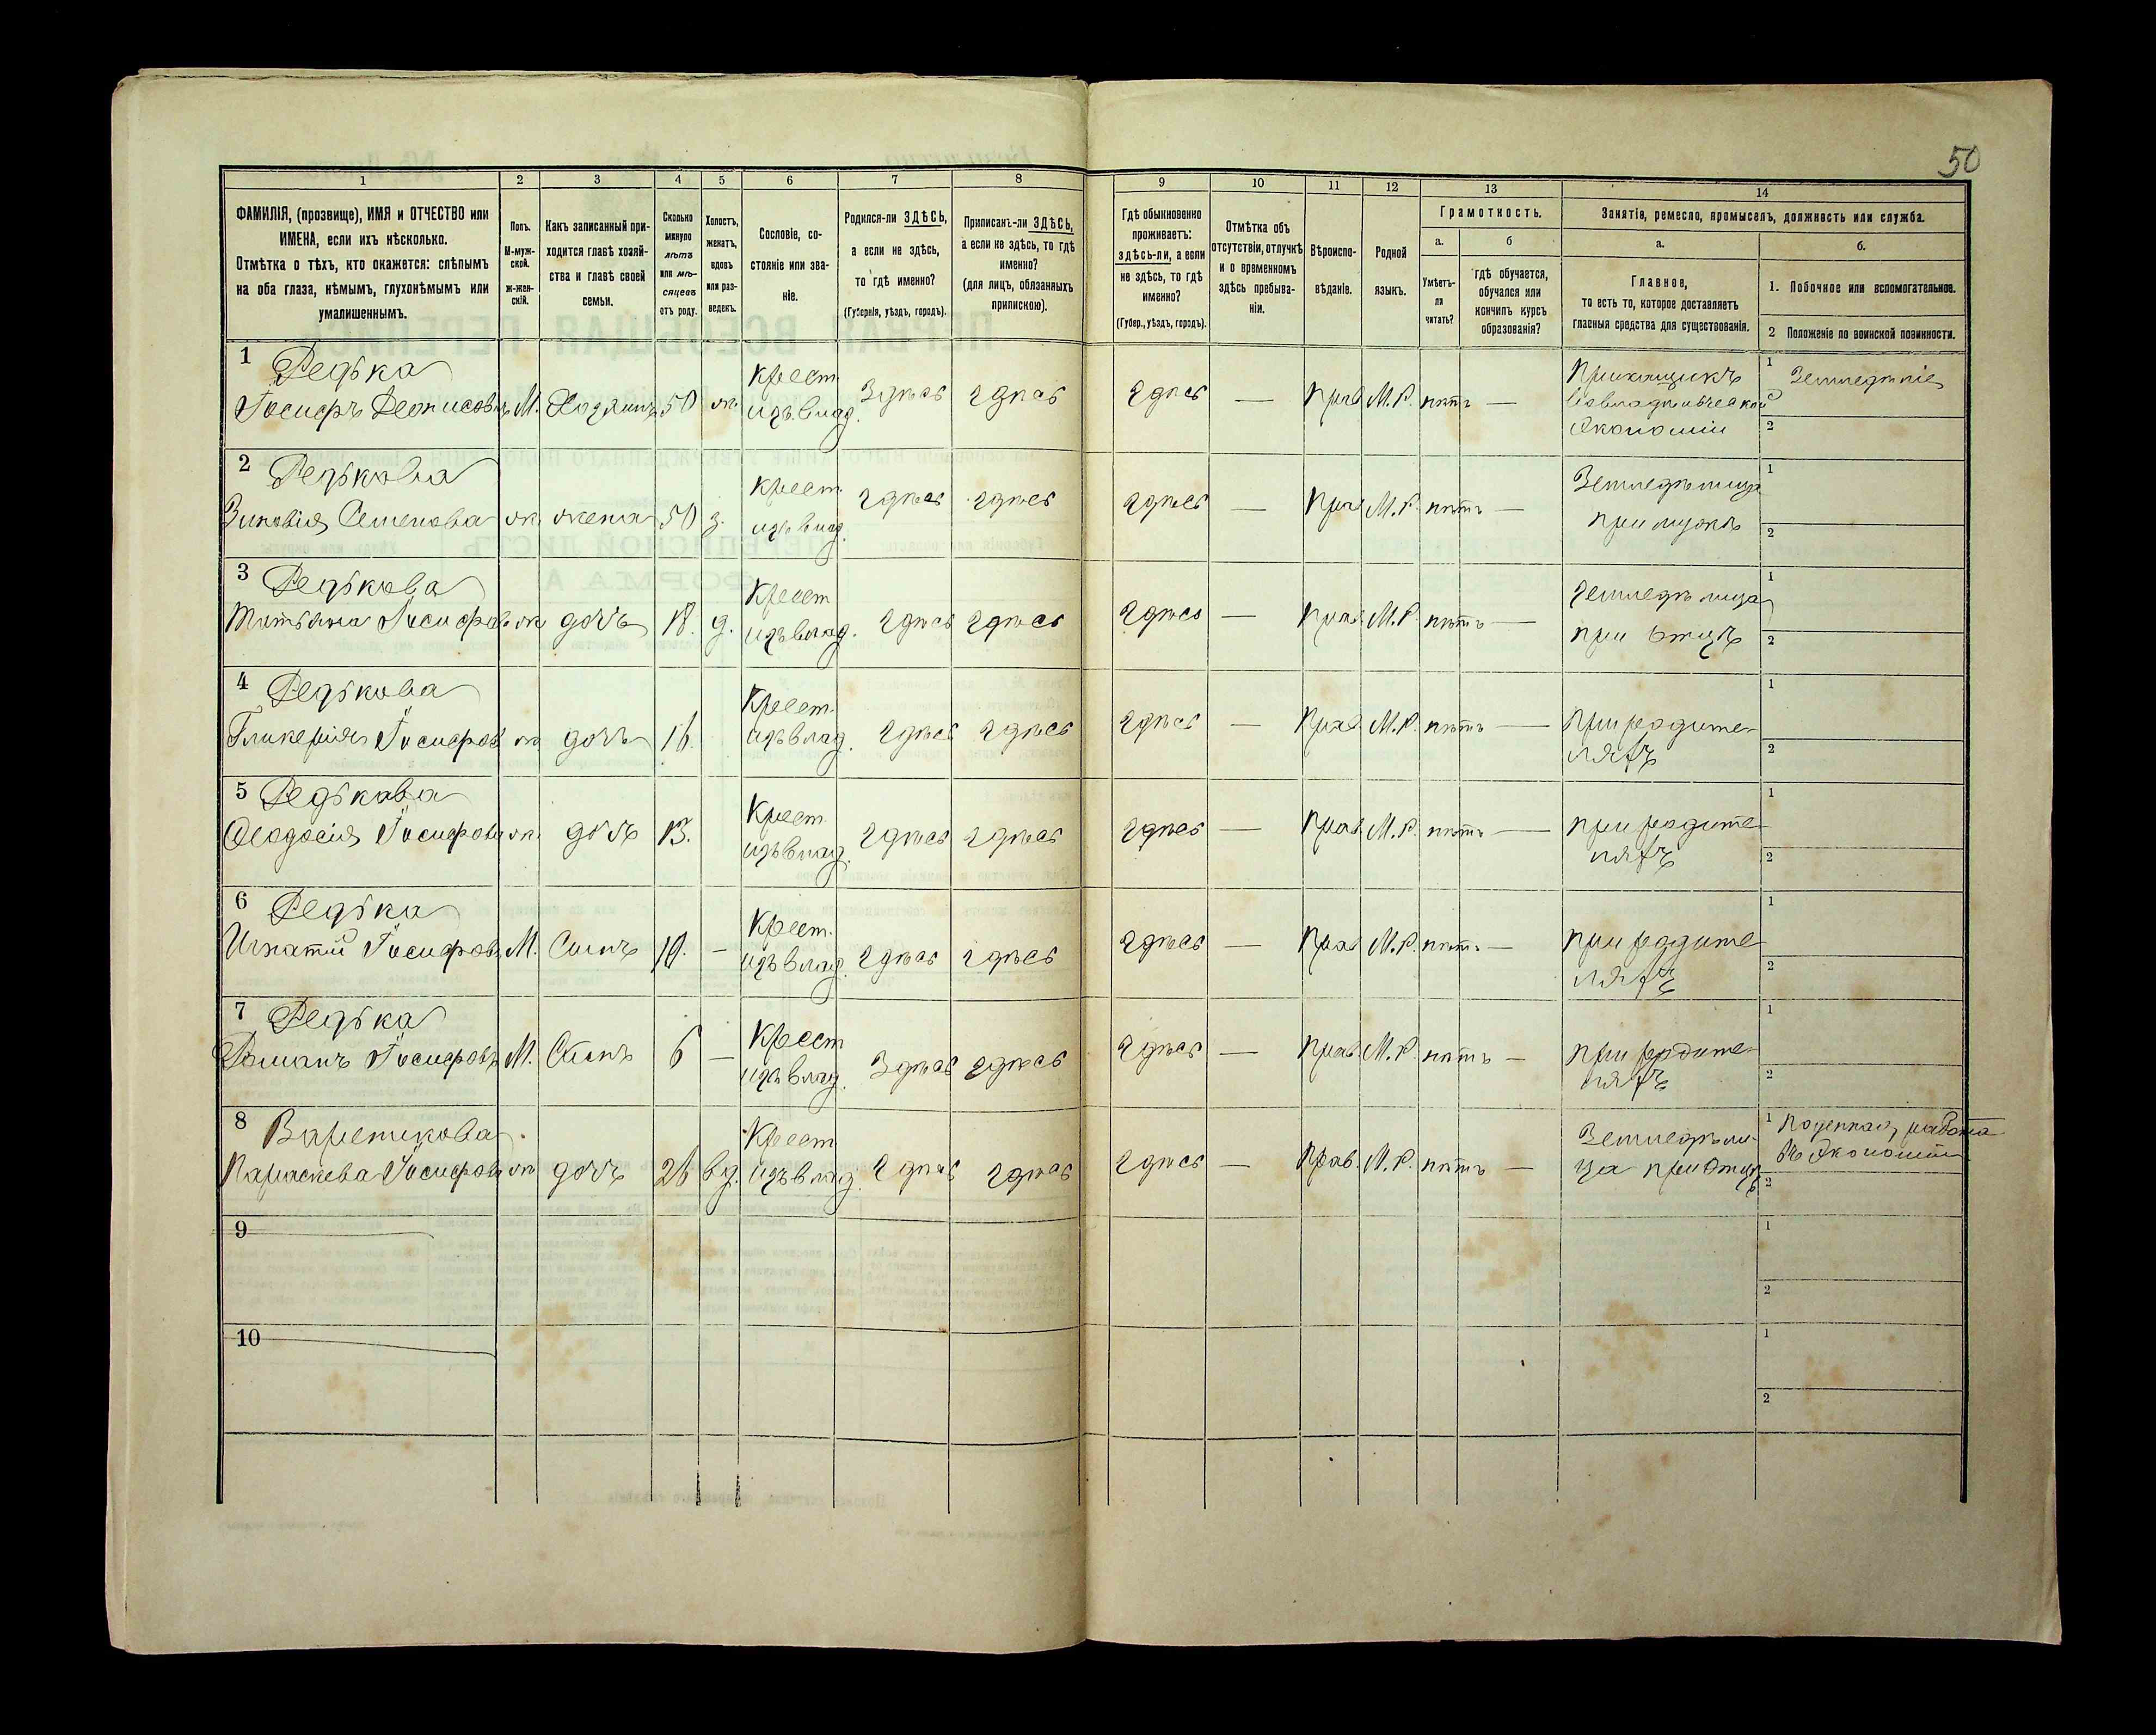 50
1 2 3 4 5 6 7 8 9 10 11 12 13 14
ФАМИЛІЯ, (прозвище), ИМЯ и ОТЧЕСТВО или
ИМЕНА, если ихъ нѣсколько.
Отмѣтка о тѣхъ, кто окажется: слѣпымъ
на оба глаза, нѣмымъ, глухонѣмымъ или
умалишеннымъ.
Полъ.
М-муж-
ской.
ж-жен-
скій.
Какъ записанный при-
ходится главѣ хозяй-
ства и главѣ своей
семьи.
Сколько
минуло
лѣтъ
или мѣ-
сяцевъ
отъ роду.
Холостъ,
женатъ,
вдовъ
или раз-
веденъ.
Сословіе, со-
стояніе или зва-
ніе.
Родился-ли ЗДѢСЬ,
а если не здѣсь,
то гдѣ именно?
(Губернія, уѣздъ, городъ).
Приписанъ-ли ЗДѢСЬ,
а если не здѣсь, то гдѣ
именно?
(для лицъ, обязанныхъ
припискою).
Гдѣ обыкновенно
проживаетъ:
здѣсь-ли, а если
не здѣсь, то гдѣ
именно?
(Губер., уѣздъ, городъ).
Отмѣтка объ
отсутствіи, отлучкѣ
и о временномъ
здѣсь пребыва-
ніи.
Вѣроиспо-
вѣданіе.
Родной
языкъ.
Грамотность.
а. б
Умѣетъ-
ли
читать?
гдѣ обучается,
обучался или
кончилъ курсъ
образованія?
Занятіе, ремесло, промыселъ, должность или служба.
а. б.
Главное,
то есть то, которое доставляетъ
главныя средства для существованія.
1. Побочное или вспомогательное.
2 Положеніе по воинской повинности.
1 Редька Крест Прикащикъ 1 Земледѣліе
Іосифъ Деонисовъ М. Хозяинъ 50 ж. изъ влад. Здѣсь здѣсь здѣсь — Прав М.Р. нѣтъ —
Экономіи 2
2 Редькова Крест Земледѣлица 1
Зиновія Семенова ж жена 50 з. изъ влад. здѣсь здѣсь здѣсь — Прав М.Р. нѣтъ — при мужѣ 2
3 Редькова Крест земледѣлица 1
Татьяна Іосифов ж дочь 18. д. изъ влад. здѣсь здѣсь здѣсь — Прав М.Р. нѣтъ — при отцѣ 2
4 Редькова Крест. при родите 1
Гликерія Іосифов ж дочь 16. изъ влад. здѣсь здѣсь здѣсь — Прав М.Р. нѣтъ — ляхъ 2
5 Редькова Крест при родите 1
Феодосія Іосифова ж дочь 13. изъ влад. здѣсь здѣсь здѣсь — Прав М.Р. нѣтъ — ляхъ 2
6 Редька Крест. при родите 1
Игнатій Іосифовъ М. Сынъ 10. — изъ влад. здѣсь здѣсь здѣсь — Прав М.Р. нѣтъ — ляхъ 2
7 Редька Крест при родите 1
Романъ Іосифовъ М. Сынъ 6 — изъ влад. Здѣсь здѣсь здѣсь — Прав М.Р. нѣтъ — ляхъ 2
8 Крест Земледѣли 1 Поденная работа
Параскева Іосифова ж дочь 26 вд. изъ влад. здѣсь здѣсь здѣсь — Прав. М.Р. нѣтъ — ца при Отцѣ въ Экономіи 2
9 1
2
10 1
2